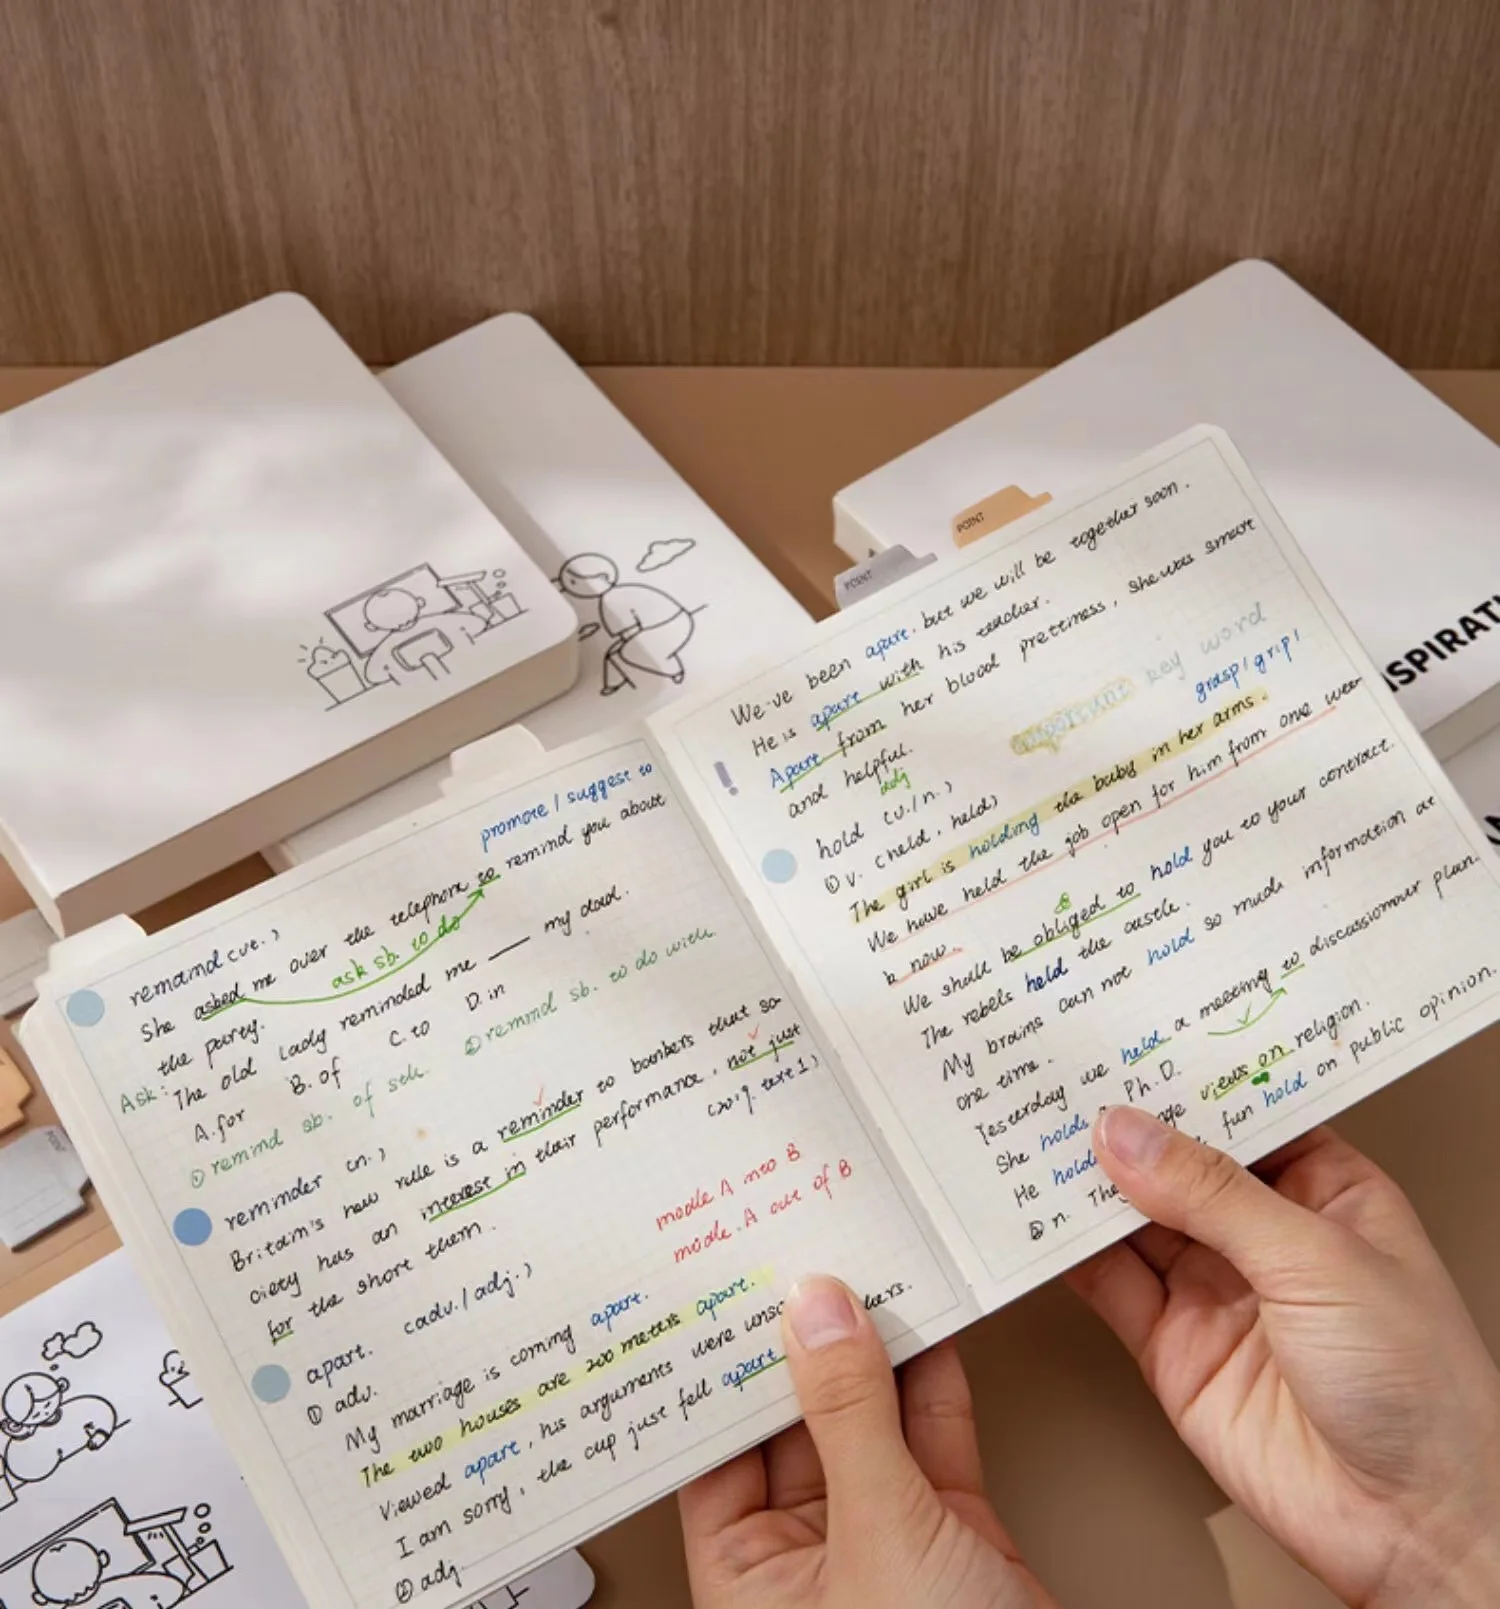 promote / suggest to
remaind (vt.)
She asked me over the telephone to remind you about
ask sb. to do
the party.
Ask: The old lady reminded me ___ my dad.
A. for B. of C. to D. in
① remind sb. of sth. ② remind sb. to do with
reminder (n.)
Britain's new rule is a reminder to bankers that so-
ciety has an interest in their performance, not just
for the short them. (201 text 1)
made A into B
made A out of B
apart. (adv./adj.)
① adv.
My marriage is coming apart.
The two houses are 200 meters apart.
Viewed apart, his arguments were
I am sorry, the cup just fell apart
② adj.
POINT
POINT
We've been apart, but we will be together soon.
He is apart with his teacher.
Apart from her blood prettiness, she was smart
and helpful.
adj
important key word
hold (v./n.)
grasp / grip /
① v. (held, held)
The girl is holding the baby in her arms.
We have held the job open for him from one wee
k now.
We shall be obliged to hold you to your contract.
The rebels held the castle.
My brains can not hold so much information at
one time.
Yesterday we held a meeting to discassiomour plan.
She holds a Ph.D.
He views on religion.
② n. fun hold on public opinion.
POINT